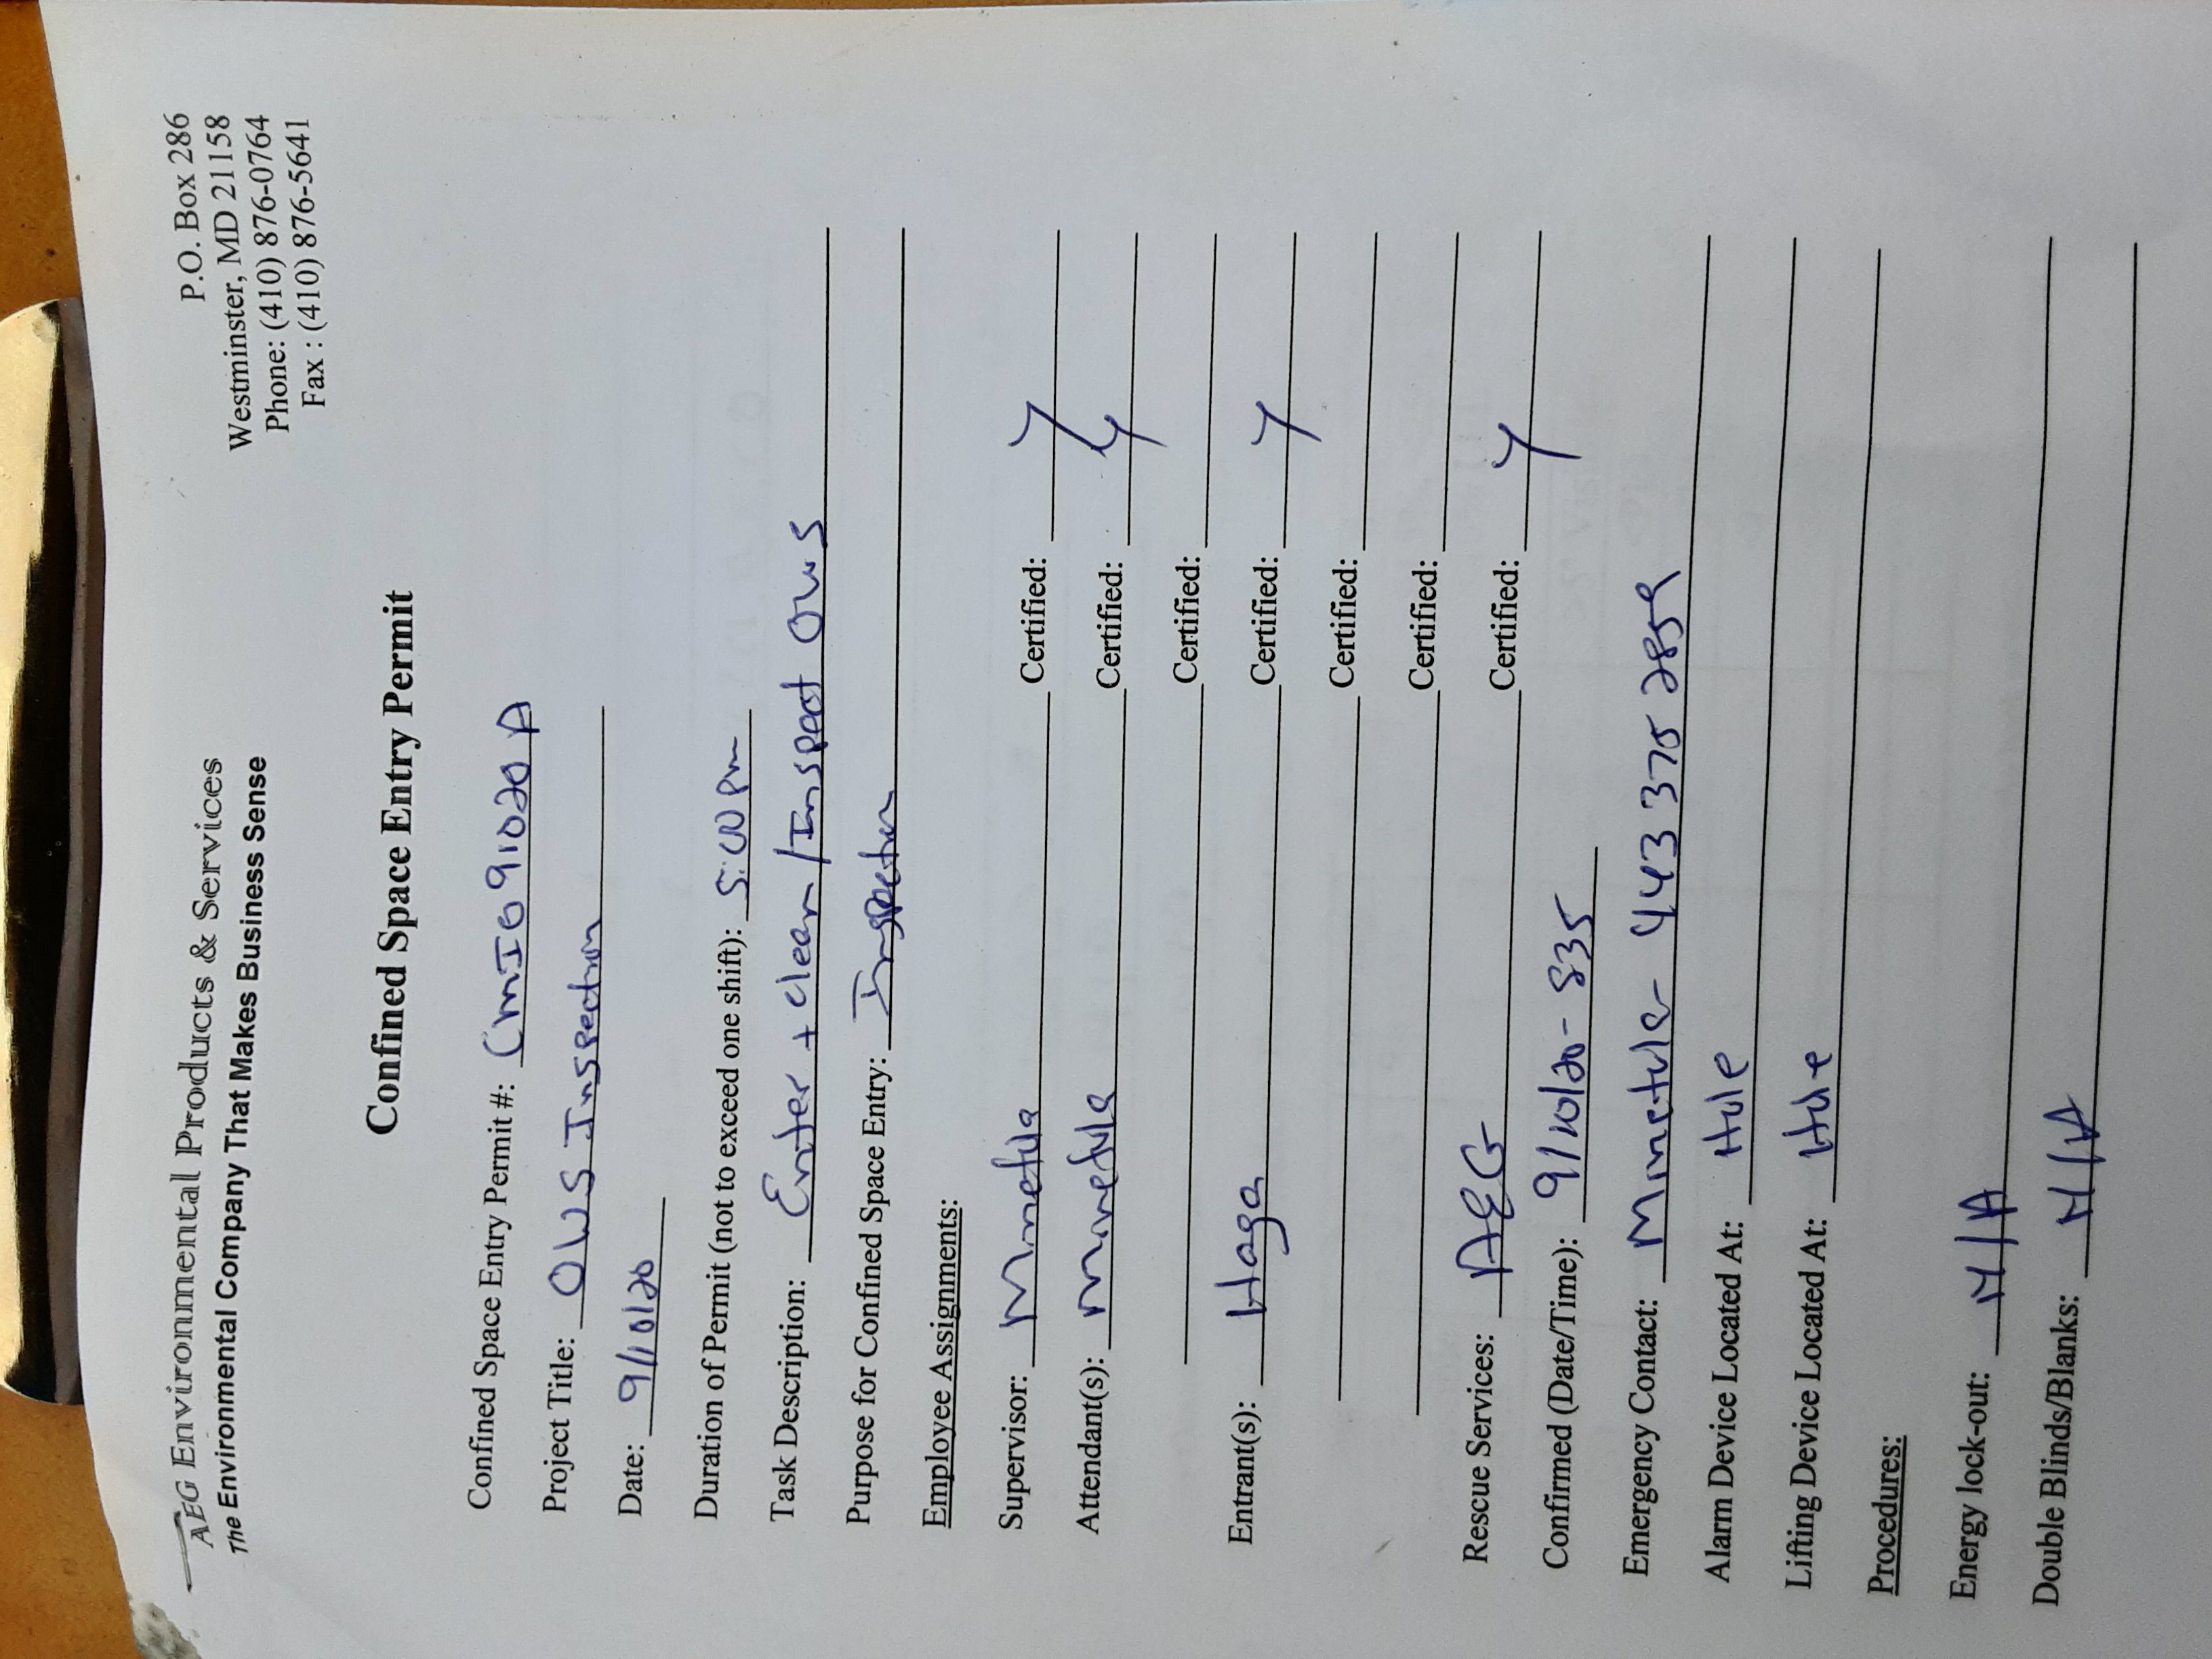 AEG Environmental Products & Services
The Environmental Company That Makes Business Sense
P.O. Box 286
Westminster, MD 21158
Phone: (410) 876-0764
Fax : (410) 876-5641
Confined Space Entry Permit
Confined Space Entry Permit #: CMI091020A
Project Title: OWS Inspection
Date: 9/10/20
Duration of Permit (not to exceed one shift): 5:00 pm
Task Description: Enter + clean/Inspect OWS
Purpose for Confined Space Entry: Inspection
Employee Assignments:
Supervisor: Minetula Certified: Y
Attendant(s): Minetula Certified: Y
Certified:
Entrant(s): Haga Certified: Y
Certified:
Certified:
Rescue Services: AEG Certified: Y
Confirmed (Date/Time): 9/10/20 - 835
Emergency Contact: Minetula - 443 375 2859
Alarm Device Located At: Hole
Lifting Device Located At: Hole
Procedures:
Energy lock-out: N/A
Double Blinds/Blanks: N/A